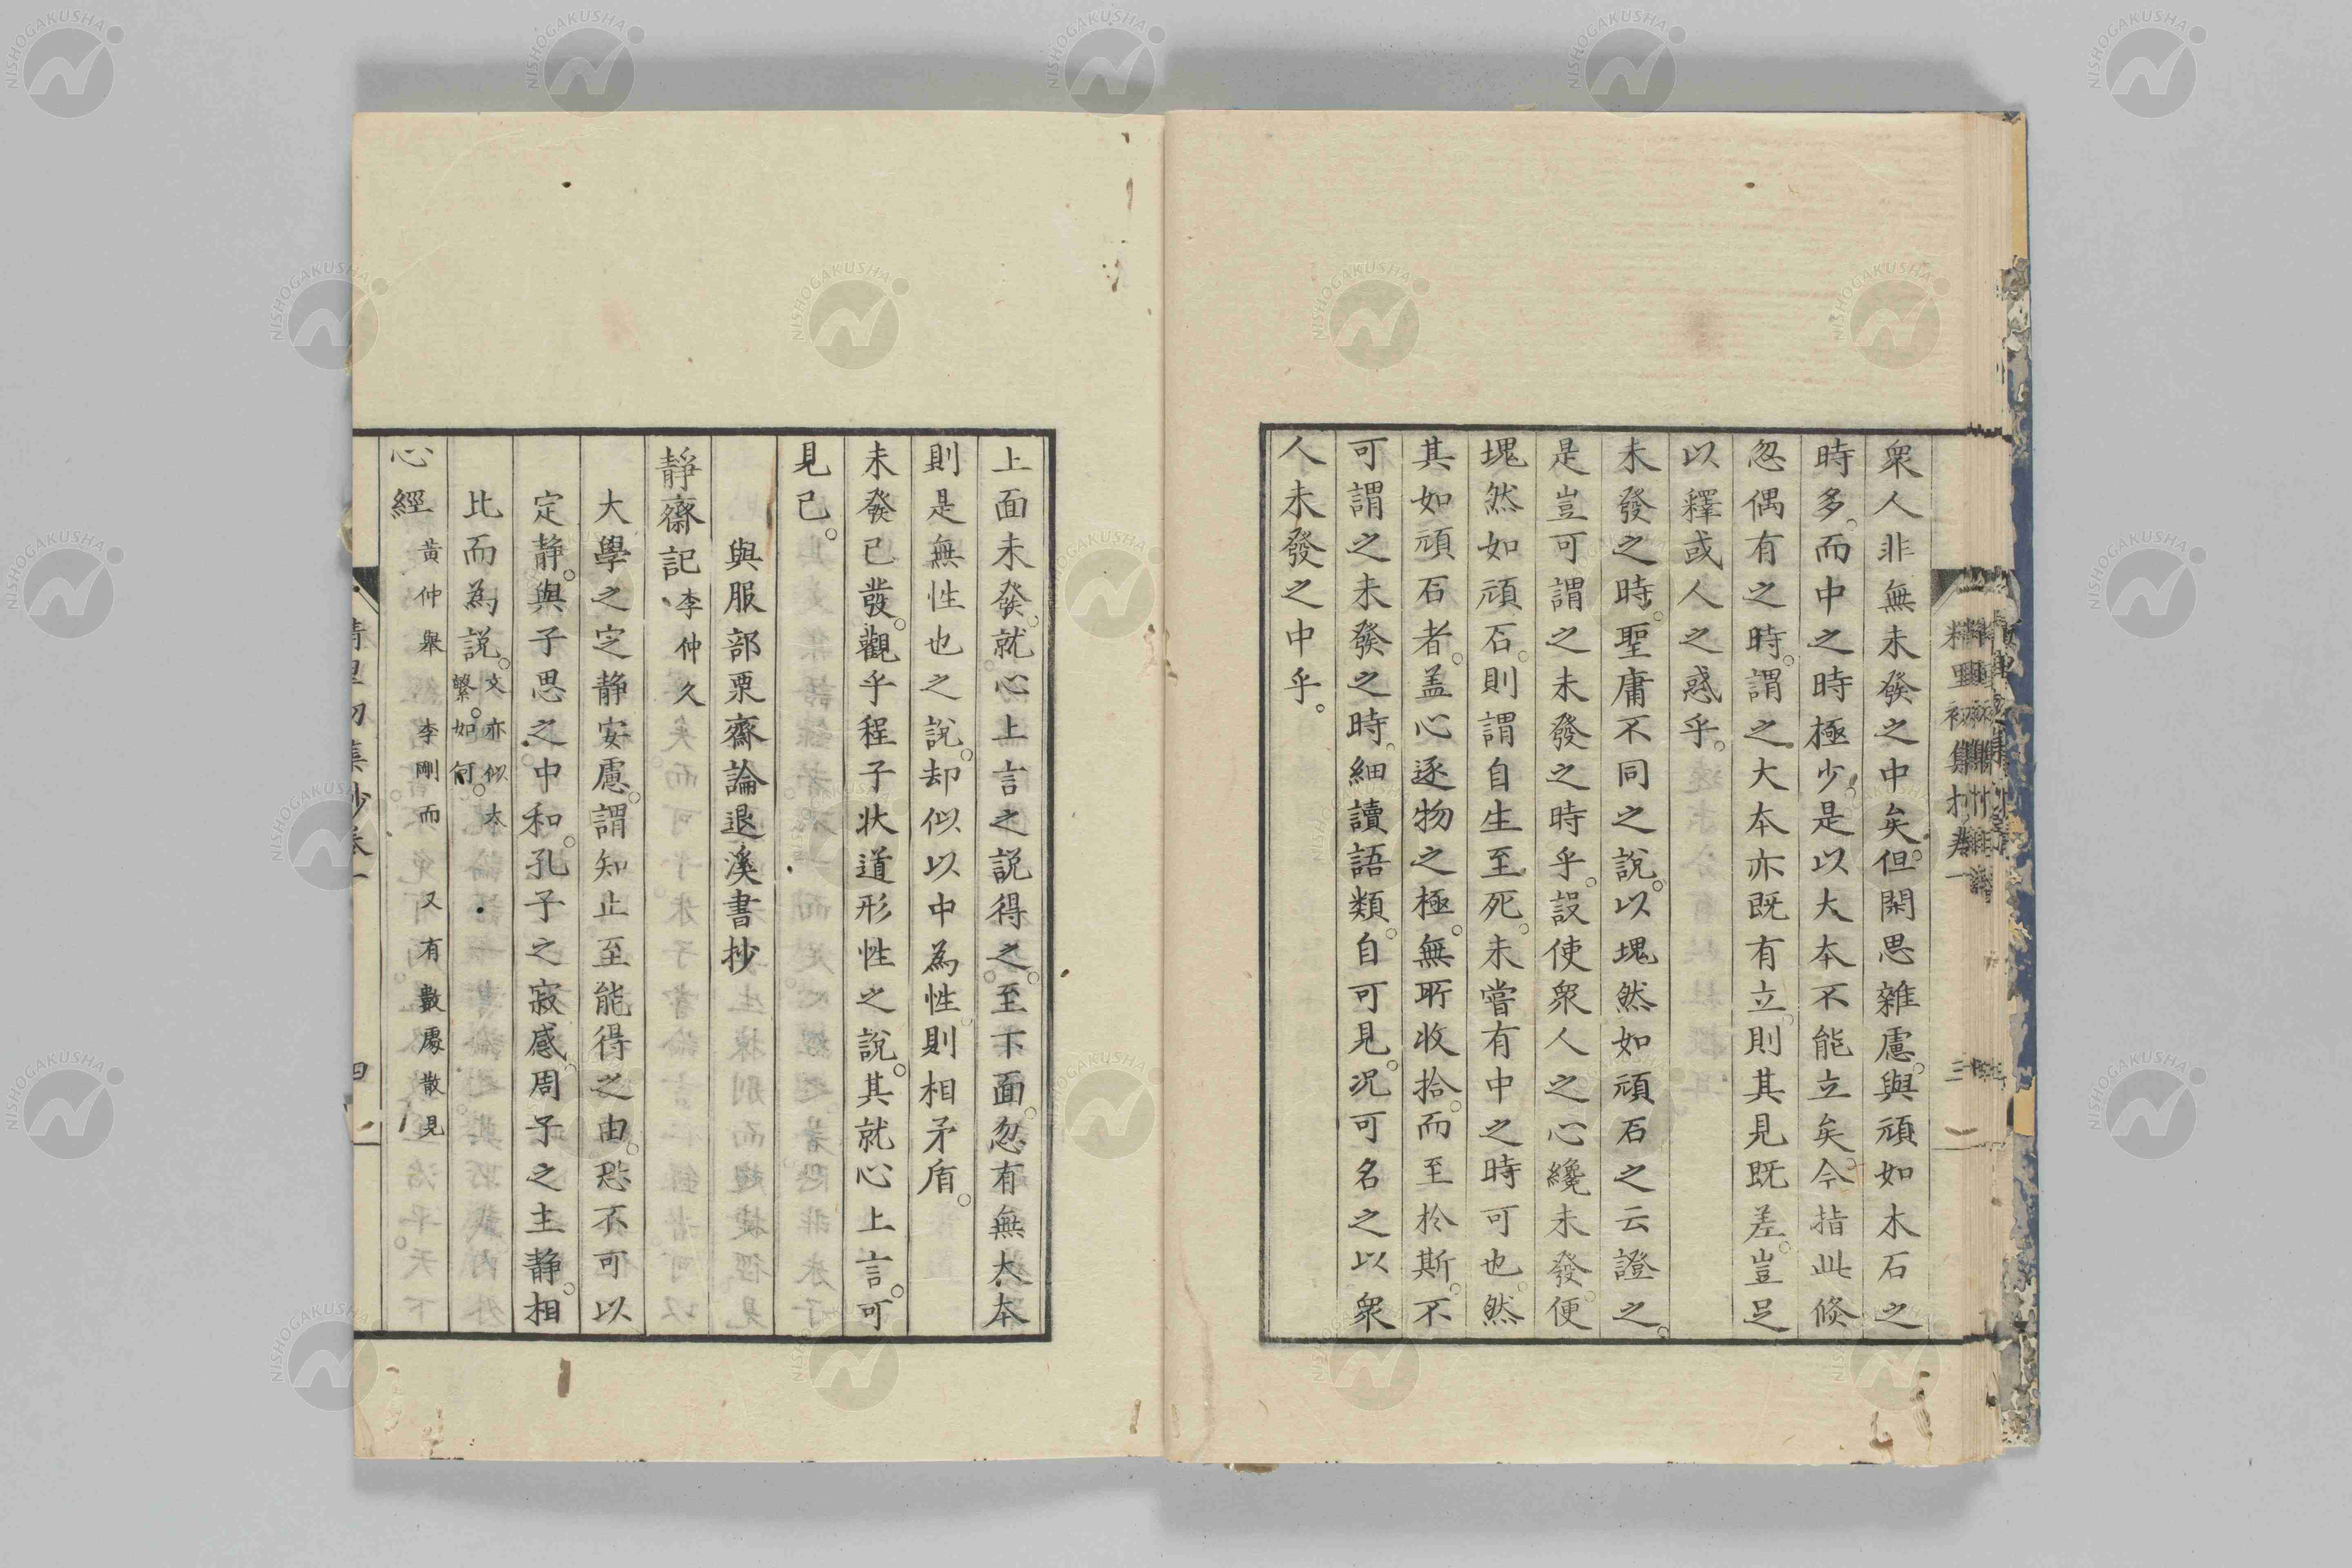 衆人非無未發之中矣。但閑思雜慮。與頑如木石之
時多。而中之時極少。是以大本不能立矣。今指此倏
忽偶有之時。謂之大本亦既有立。則其見既差。豈足
以釋或人之惑乎。
未發之時。聖庸不同之說。以塊然如頑石之云證之。
是豈可謂之未發之時乎。設使衆人之心纔未發。便
塊然如頑石。則謂自生至死。未嘗有中之時可也。然
其如頑石者。盖心逐物之極。無所收拾。而至於斯。不
可謂之未發之時。細讀語類。自可見。况可名之以衆
人未發之中乎。
上面未發。就心上言之說得之。至下面。忽有無大本
則是無性也之說。却似以中為性。則相矛盾。
未發已發。觀乎程子狀道形性之說。其就心上言。可
見已。
與服部栗齋論退溪書抄
靜齋記 李仲久
大學之定靜安慮。謂知止至能得之由。恐不可以
定靜。與子思之中和。孔子之寂感。周子之主靜。相
比而為說。文亦似太繁。如何。
心經 黃仲舉 李剛而 又有數處散見
精里初集抄卷一 四
NISHOGAKUSHA